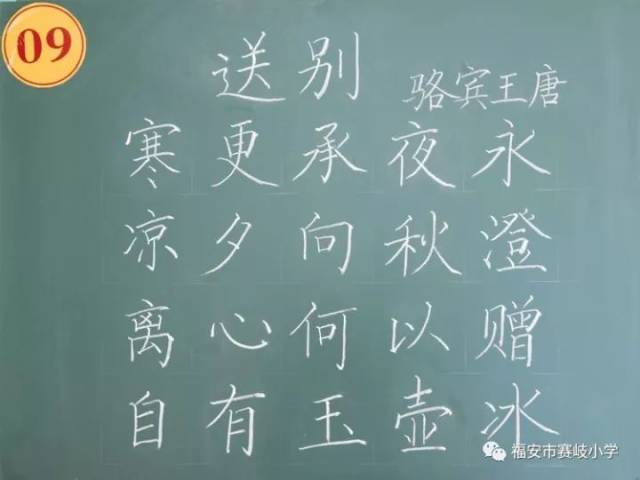 09
送别
骆宾王唐
寒更承夜永
凉夕向秋澄
离心何以赠
自有玉壶冰
福安市赛岐小学